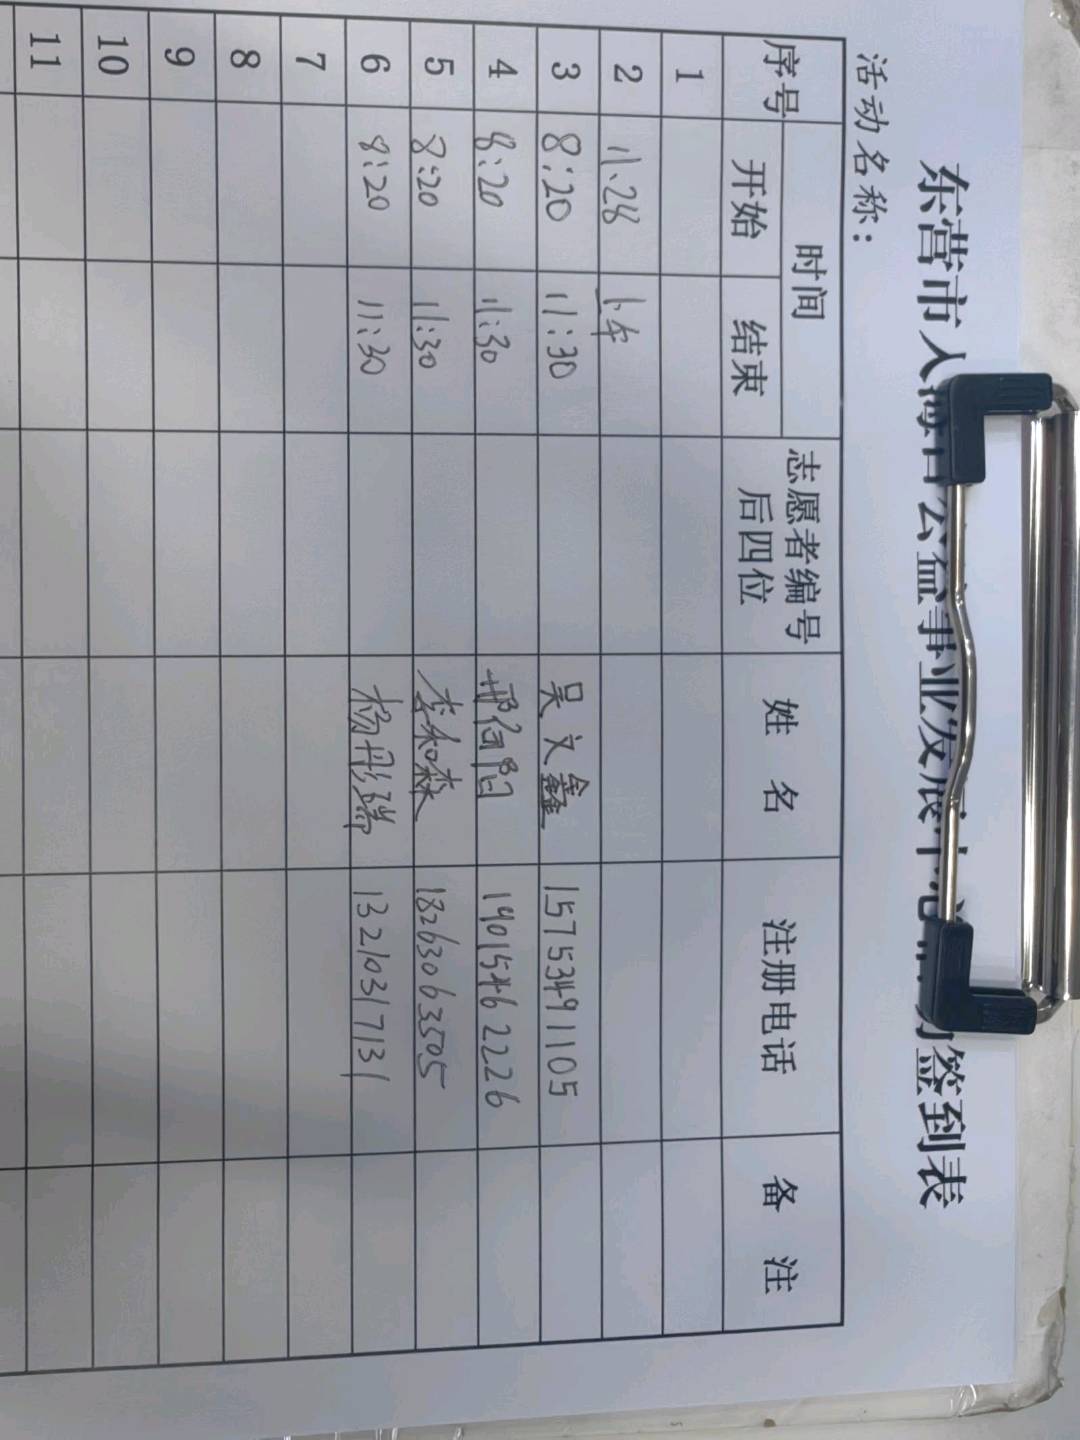 东营市人 公益事业发展中心 签到表
活动名称：
序号 时间 志愿者编号后四位 姓 名 注册电话 备 注
开始 结束
1
2 11.28 上午
3 8:20 11:30 吴文鑫 15753491105
4 8:20 11:30 14015462226
5 8:20 11:30 李和森 18263063505
6 8:20 11:30 杨彤瑞 13210317131
7
8
9
10
11